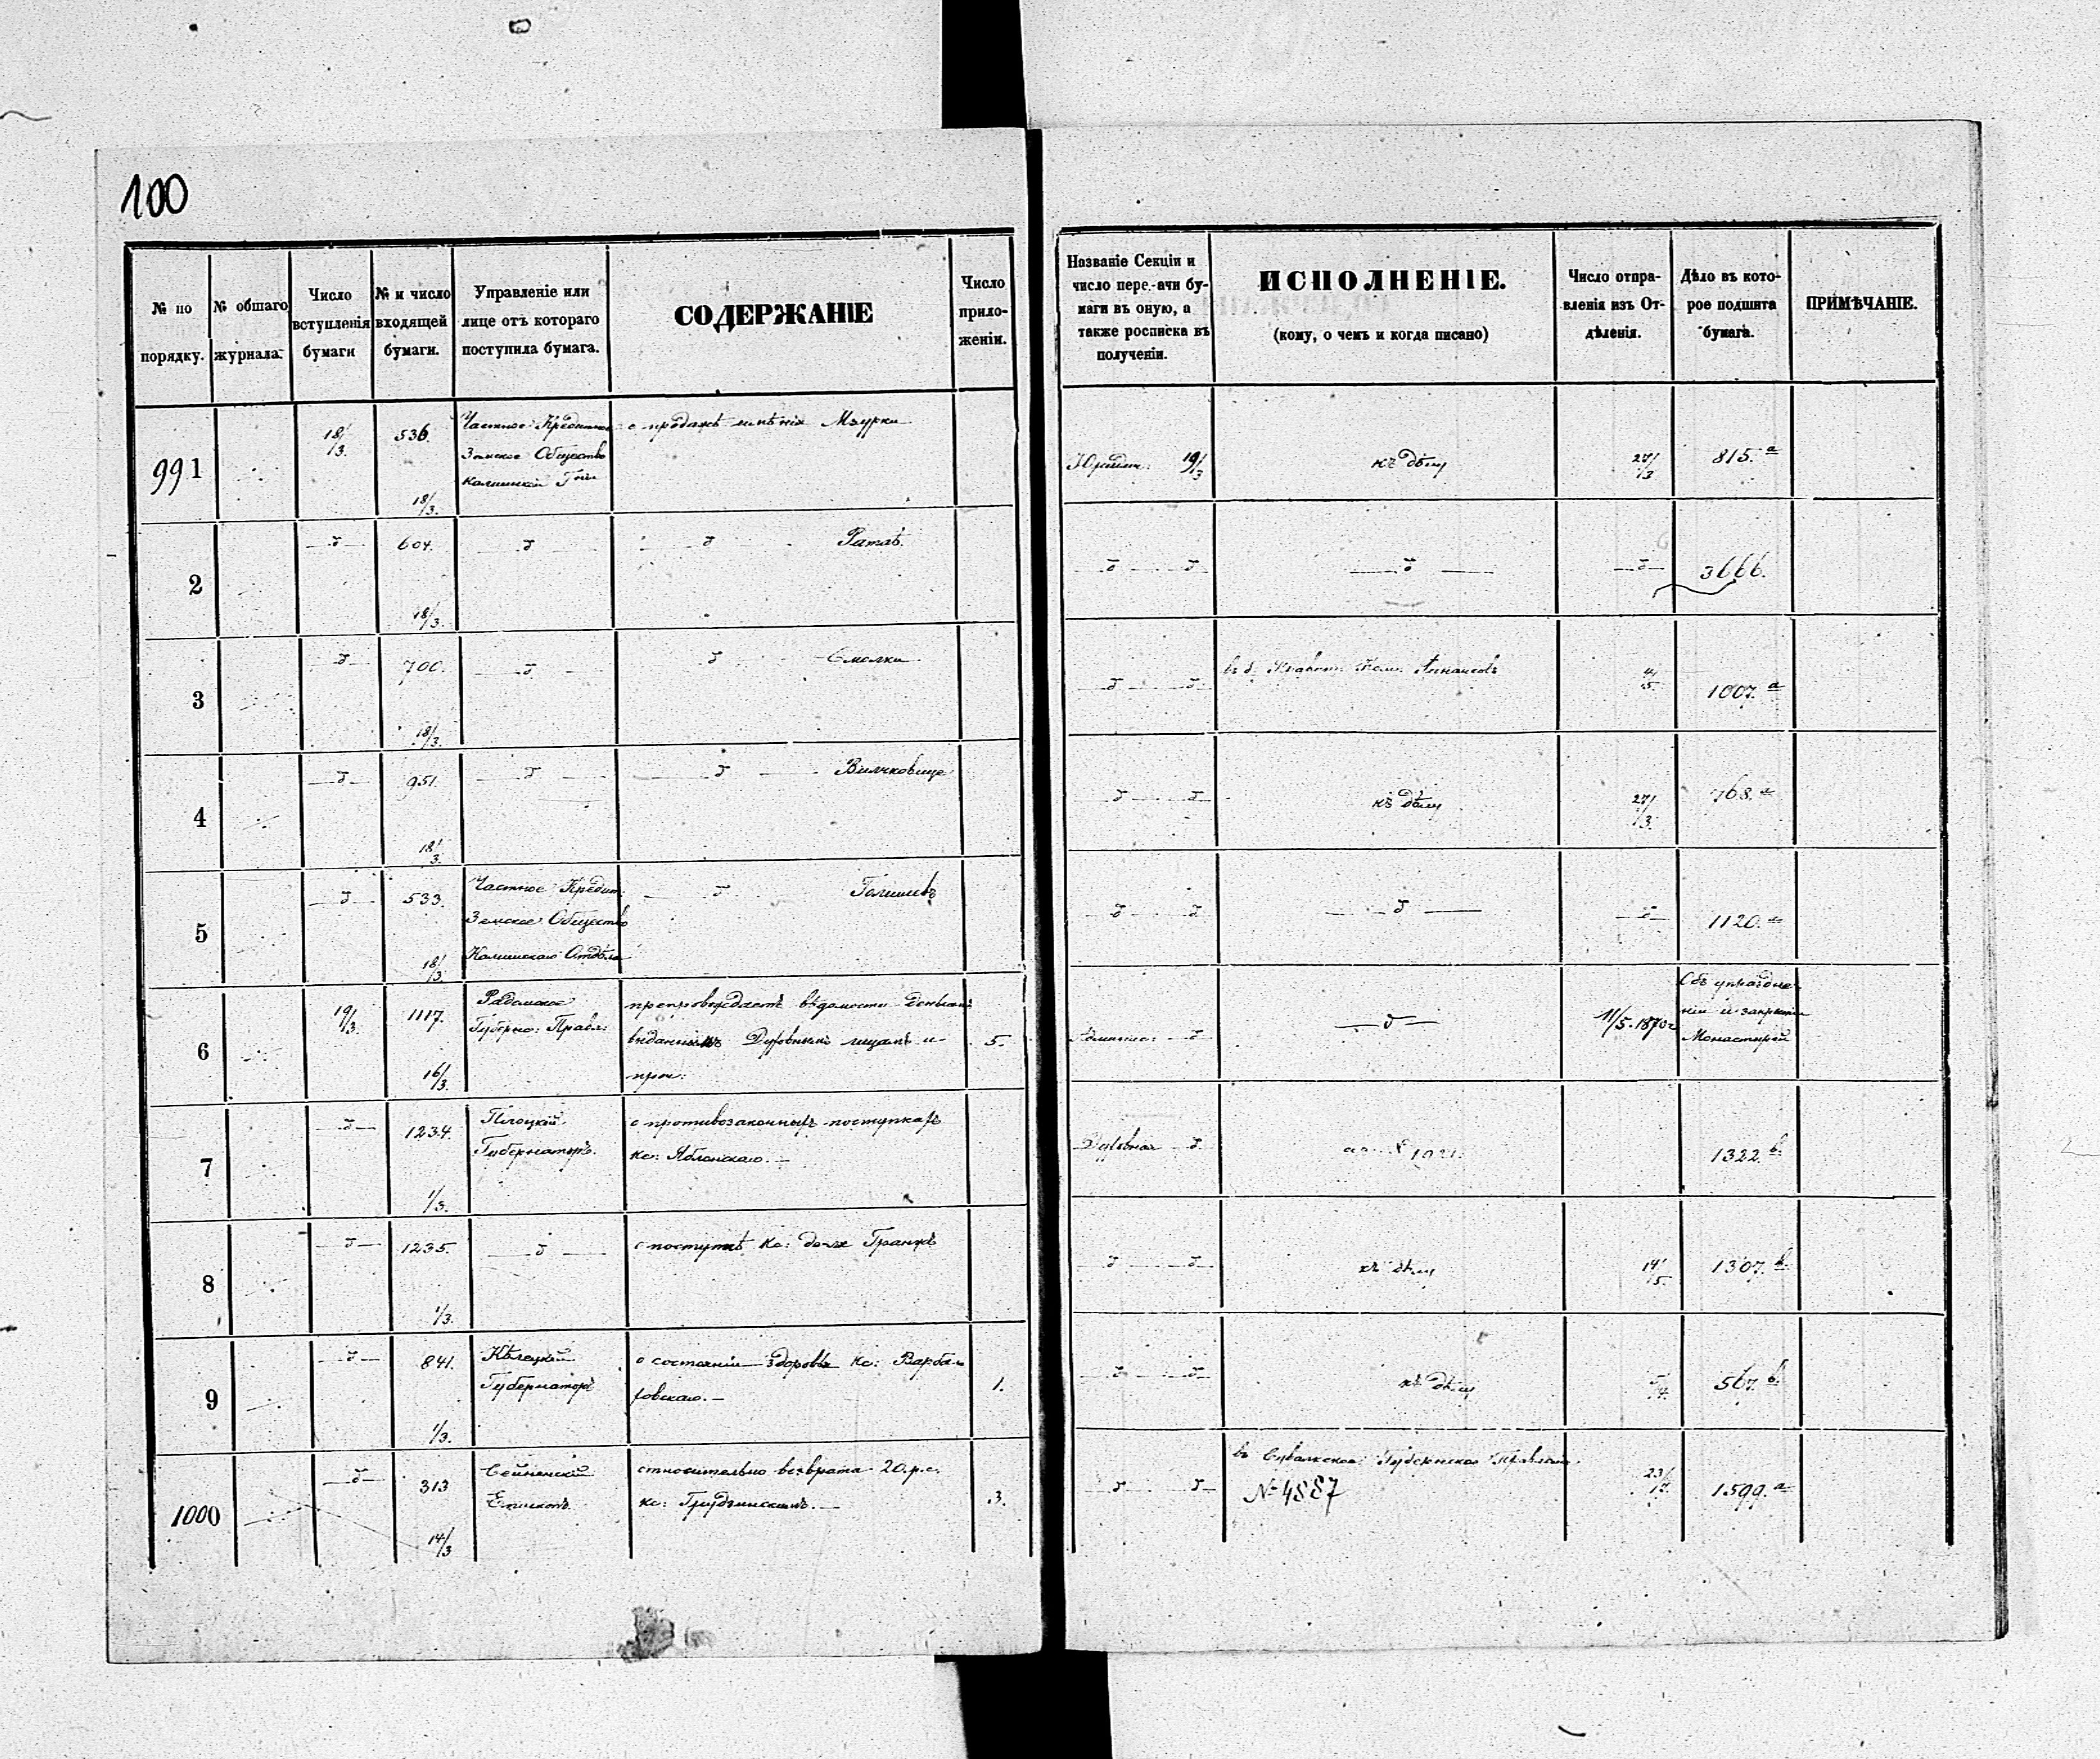 100
№ по порядку.
№ общаго журнала.
Число вступленія бумаги
№ и число входящей бумаги.
Управленіе или лице отъ котораго поступила бумага.
СОДЕРЖАНІЕ
Число прило- женіи.
Названіе Секціи и число пере.-ачи бу- маги въ оную, а также росписка въ полученіи.
ИСПОЛНЕНІЕ.
(кому, о чемъ и когда писано)
Число отпра- вленія изъ От- дѣленія.
Дѣло въ кото- рое подшита бумага.
ПРИМѢЧАНІЕ.
991 18/3. 536. 18/3.
Частное Кредитное
Земское Общество
Калишской Губ.
о продажѣ имѣнія Мзурки
19/3 къ дѣлу 27/3 815. а
2 —д— 604. 18/3. —д— —д— 
—д— —д— —д— —д— 3666.
3 —д— 700. 18/3. —д— —д— Смолки
—д— —д— 4/5. 1007. а
4 —д— 951. 18/3. —д— —д— Вилчковице
—д— —д— къ дѣлу 27/3. 768. а
5 —д— 533. 18/3.
Частное Кредит.
Земское Общество
Калишскаго Отдѣла
—д— Голишевъ
—д— —д— —д— —д— 1120. а
6 19/3. 1117. 16/3.
Радомское
Губерн: Правл:
препровождаетъ вѣдомости деньгамъ
выданнымъ Духовнымъ лицамъ и
проч:
5.
Админис: —д— —д— 11/5. 1870 г
Объ упраздне-
ніи и закрытіи
Монастырей
7 —д— 1234. 1/3.
Плоцкій
Губернаторъ.
о противозаконныхъ поступкахъ
кс: Яблонскаго. —
Духовная —д— 1322. в.
8 —д— 1235. 1/3. —д—
о поступкѣ кс:
—д— —д— къ дѣлу 14/5. 1307. в.
9 —д— 841. 1/3.
Кѣлецкій
Губернаторъ
о состояніи здоровья кс:
1.
—д— —д— къ дѣлу 567. в.
1000 —д— 313 14/3
Сейненскій
Епископъ.
относительно возврата 20. р. с.
кс: Грудзинскимъ. —
3.
—д— —д—
въ Сувалкское Губернское Правленіе.
№ 4887
1599. а